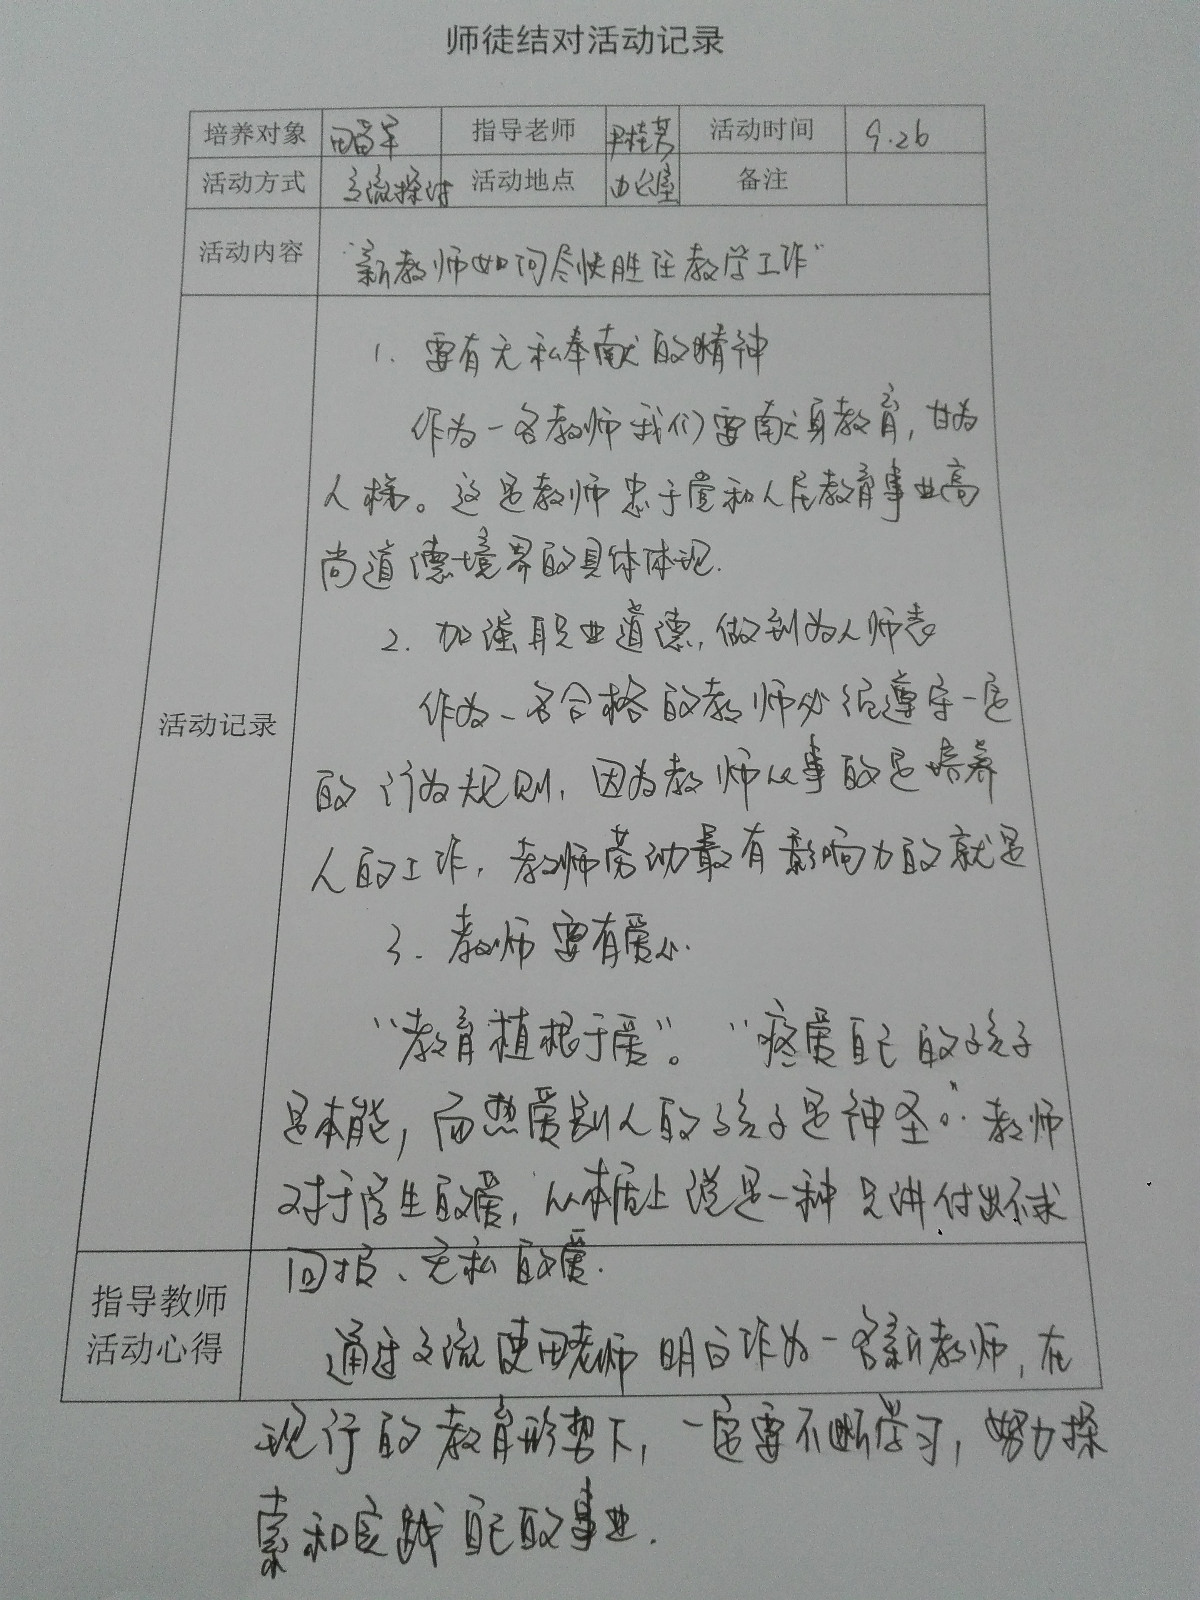 师徒结对活动记录
培养对象 指导老师 活动时间 9.26
活动方式 交流探讨 活动地点 办公室 备注
活动内容 “新教师如何尽快胜任教学工作”
1. 要有无私奉献的精神
作为一名教师我们要献身教育，甘为
人梯。这是教师忠于党和人民教育事业高
尚道德境界的具体体现.
2. 加强职业道德，做到为人师表
作为一名合格的教师必须遵守一定
活动记录
的行为规则，因为教师从事的是培养
人的工作，教师劳动最有影响力的就是
3. 教师要有爱心.
“教育植根于爱”。“疼爱自己的孩子
是本能，而热爱别人的孩子是神圣。”教师
对于学生的爱，从本质上说是一种只讲付出不求
回报、无私的爱.
指导教师
活动心得
通过交流使田老师明白作为一名新教师，在
现行的教育形势下，一定要不断学习，努力探
索和实践自己的事业.